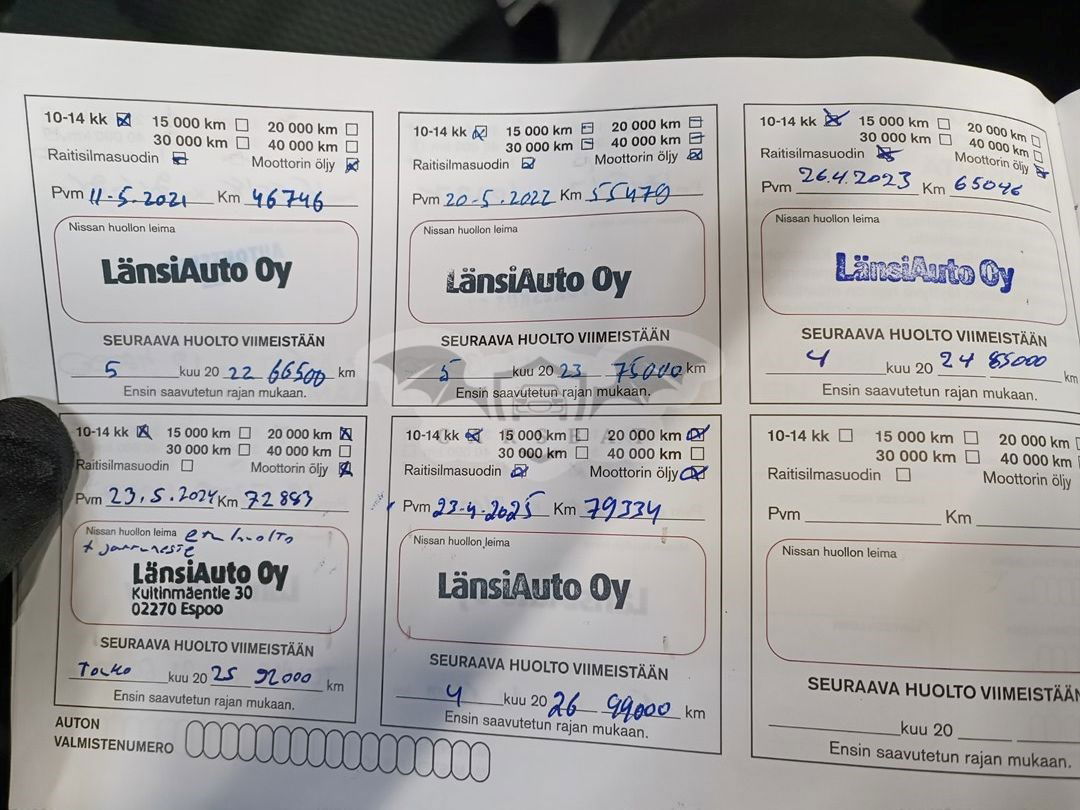 10-14 kk 15 000 km 20 000 km
30 000 km 40 000 km
Raitisilmasuodin Moottorin öljy
Pvm 11-5.2021 Km 46746
Nissan huollon leima
LänsiAuto Oy
SEURAAVA HUOLTO VIIMEISTÄÄN
5 kuu 20 22 66500 km
Ensin saavutetun rajan mukaan.
10-14 kk 15 000 km 20 000 km
30 000 km 40 000 km
Raitisilmasuodin Moottorin öljy
Pvm 20-5.2022 Km 55479
Nissan huollon leima
LänsiAuto Oy
SEURAAVA HUOLTO VIIMEISTÄÄN
5 kuu 20 23 75000 km
Ensin saavutetun rajan mukaan.
10-14 kk 15 000 km 20 000 km
30 000 km 40 000 km
Raitisilmasuodin Moottorin öljy
Pvm 26.4.2023 Km 65046
Nissan huollon leima
LänsiAuto Oy
SEURAAVA HUOLTO VIIMEISTÄÄN
4 kuu 20 24 85000 km
Ensin saavutetun rajan mukaan.
10-14 kk 15 000 km 20 000 km
30 000 km 40 000 km
Raitisilmasuodin Moottorin öljy
Pvm 23.5.2024 Km 72883
Nissan huollon leima em huolto
+ jarruneste
LänsiAuto Oy
Kuitinmäentie 30
02270 Espoo
SEURAAVA HUOLTO VIIMEISTÄÄN
Touko kuu 20 25 92000 km
Ensin saavutetun rajan mukaan.
10-14 kk 15 000 km 20 000 km
30 000 km 40 000 km
Raitisilmasuodin Moottorin öljy
Pvm 23.4.2025 Km 79334
Nissan huollon leima
LänsiAuto Oy
SEURAAVA HUOLTO VIIMEISTÄÄN
4 kuu 20 26 99000 km
Ensin saavutetun rajan mukaan.
10-14 kk 15 000 km 20 000 km
30 000 km 40 000 km
Raitisilmasuodin Moottorin öljy
Pvm Km
Nissan huollon leima
SEURAAVA HUOLTO VIIMEISTÄÄN
kuu 20
Ensin saavutetun rajan mukaan.
AUTON
VALMISTENUMERO